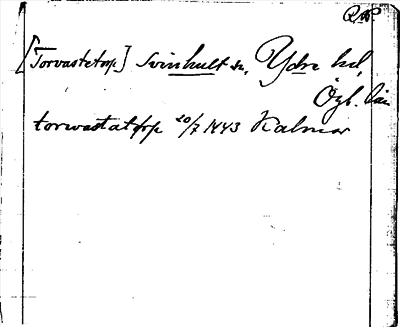 [Torvastetorp.] Svinhult sn, Ydre hd,
Ögl. län
torwastatorp 20/7 1443 Kalmar